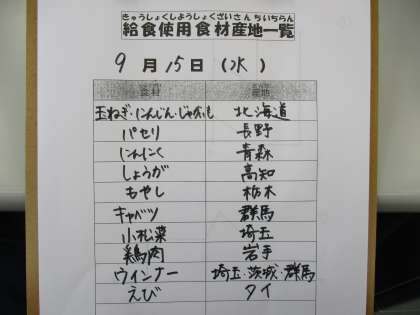 きゅうしょくしようしょくざいさんちいちらん
給食使用食材産地一覧
9月15日(水)
食材 産地
玉ねぎ・にんじん・じゃがいも 北海道
パセリ 長野
にんにく 青森
しょうが 高知
もやし 栃木
キャベツ 群馬
小松菜 埼玉
鶏肉 岩手
ウィンナー 埼玉・茨城・群馬
えび タイ